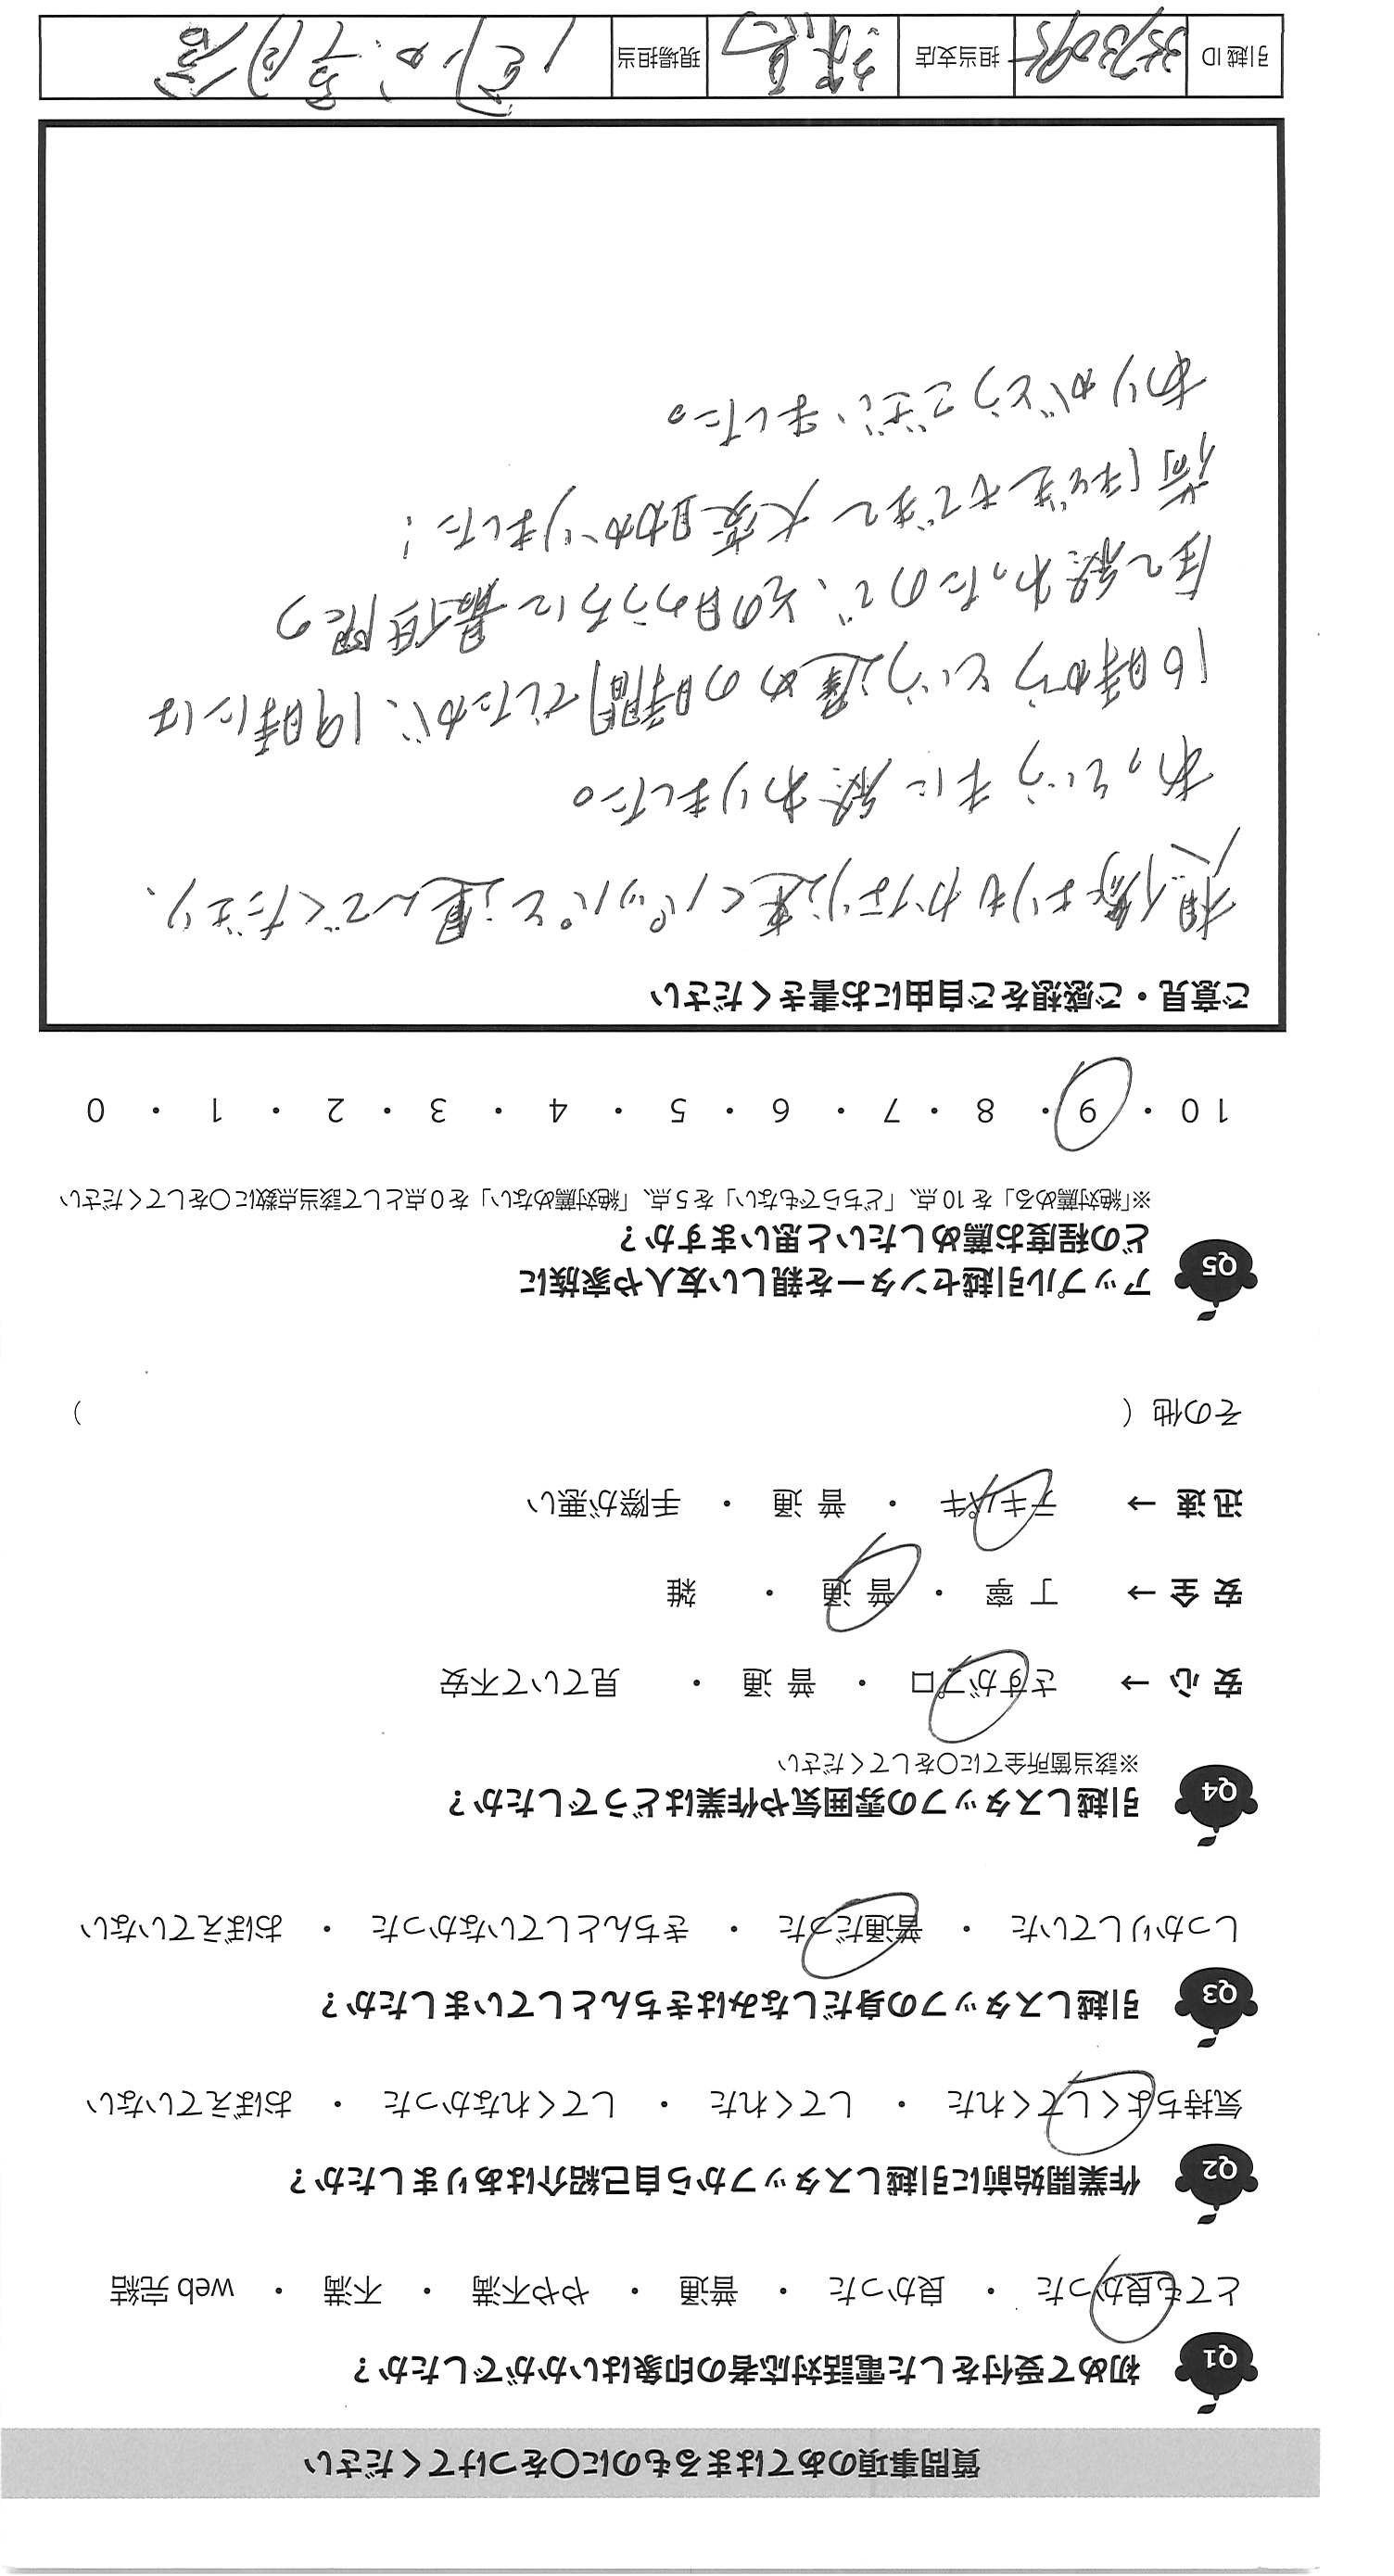 質問事項のあてはまるものに○をつけてください
Q1 初めて受付をした電話対応者の印象はいかがでしたか？
とても良かった ・ 良かった ・ 普通 ・ やや不満 ・ 不満 ・ web 完結
Q2 作業開始前に引越しスタッフから自己紹介はありましたか？
気持ちよくしてくれた ・ してくれた ・ してくれなかった ・ おぼえていない
Q3 引越しスタッフの身だしなみはきちんとしていましたか？
しっかりしていた ・ 普通だった ・ きちんとしていなかった ・ おぼえていない
Q4 引越しスタッフの雰囲気や作業はどうでしたか？
※該当箇所全てに○をしてください
安 心 → さすがプロ ・ 普 通 ・ 見ていて不安
安 全 → 丁 寧 ・ 普 通 ・ 雑
迅 速 → テキパキ ・ 普 通 ・ 手際が悪い
その他（ ）
Q5 アップル引越センターを親しい友人や家族に
どの程度お薦めしたいと思いますか？
※「絶対薦める」を 10 点、「どちらでもない」を 5 点、「絶対薦めない」を 0 点として該当点数に○をしてください
10 ・ 9 ・ 8 ・ 7 ・ 6 ・ 5 ・ 4 ・ 3 ・ 2 ・ 1 ・ 0
ご意見・ご感想をご自由にお書きください
想像よりもかなり速くパッパと運んでくださり、
あっというまに終わりました。
16時からという遅めの時間でしたが、19時には
全て終わったので、その日のうちに最低限の
荷ほどきもできて大変助かりました！
ありがとうございました。
引越 ID 担当支店 練馬 現場担当